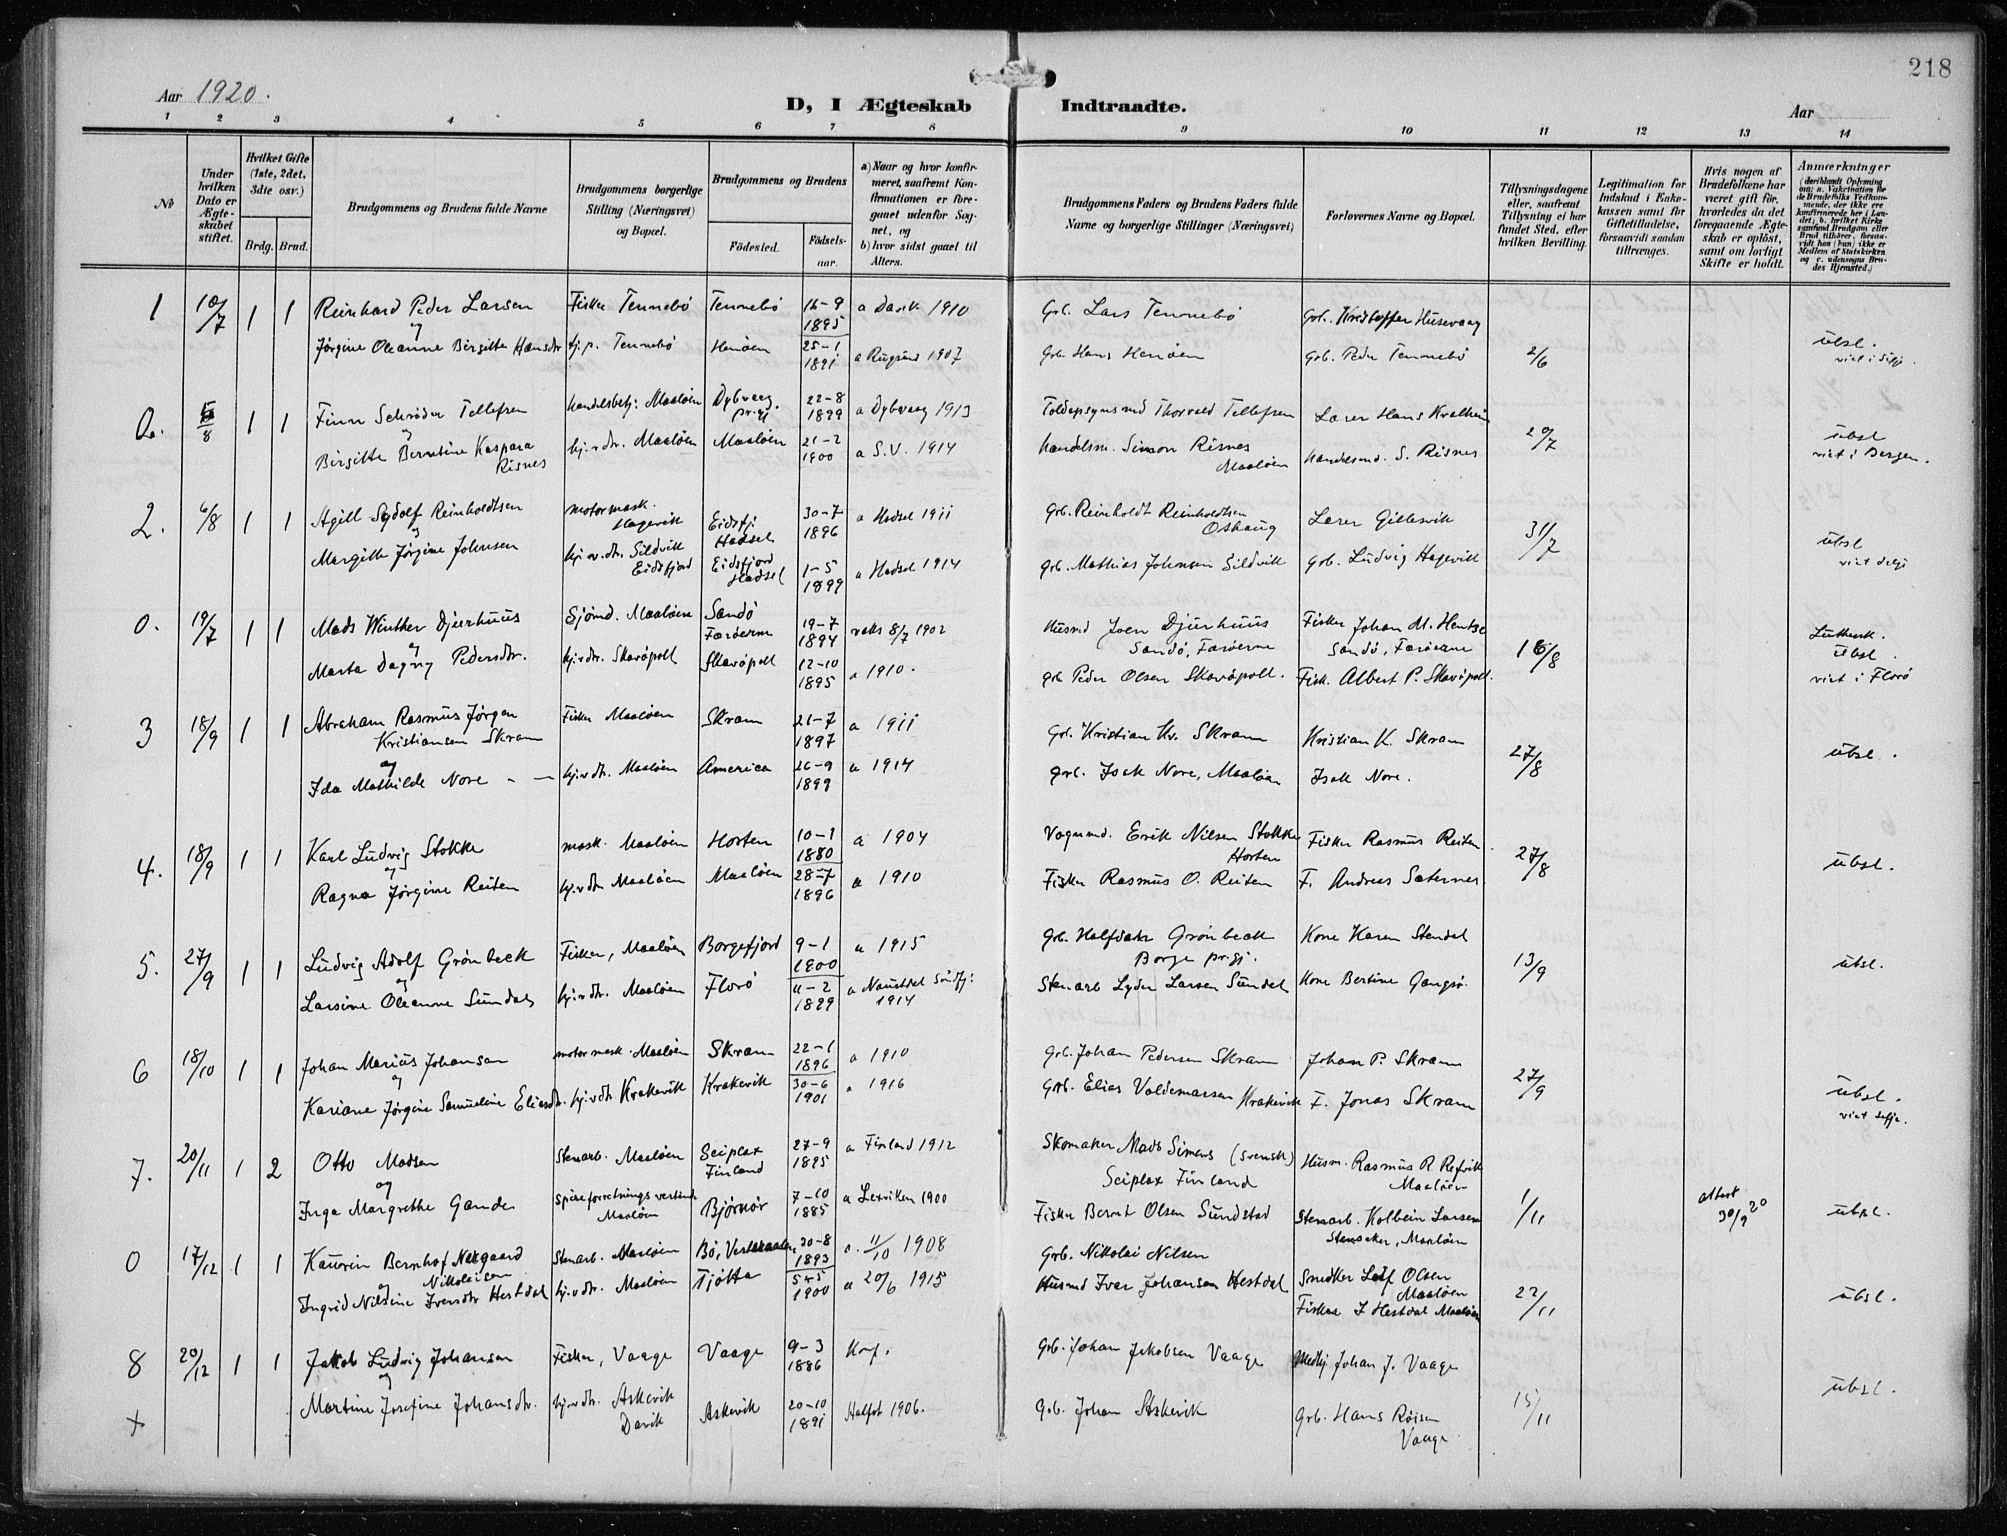 218
Aar 1920.
D, I Ægteskab Indtraadte.
Aar
1 2 3 4 5 6 7 8 9 10 11 12 13 14
No
Under hvilken Dato er Ægteskabet stiftet.
Hvilket Gifte (1ste, 2det, 3die osv.)
Brdg. Brud.
Brudgommens og Brudens fulde Navne
Brudgommens borgerlige Stilling (Næringsvei) og Bopæl.
Brudgommens og Brudens
Fødested. Fødselsaar.
a) Naar og hvor konfirmeret, saafremt Konfirmationen er foregaaet udenfor Sognet, og
b) hvor sidst gaaet til Alters.
Brudgommens Faders og Brudens Faders fulde Navne og borgerlige Stillinger (Næringsvei)
Forlovernes Navne og Bopæl.
Tillysningsdagene eller, saafremt Tillysning ei har fundet Sted, efter hvilken Bevilling.
Legitimation for Indskud i Enkekassen samt for Giftetilladelse, forsaavidt saadan tiltrænges.
Hvis nogen af Brudefolkene har været gift før, hvorledes da det foregaaende Ægteskab er opløst, samt om lovligt Skifte er holdt.
Anmærkninger
1 10/7 1 1 Reinhard Peder Larsen Fisker Tennebö Tennebö 16-9 1895 a Davik 1910 Grb. Lars Tennebö Grb. Kristoffer Husevaag
og
Jørgine Oleanne Birgitte Hansdtr tj.p. Tennebö Henöen 25-1 1891 a Rugsund 1907 Grb. Hans Henöen Grb. Peder Tennebö 2/6 übst. viet i Selje.
0. 5/8 1 1 Finn Schröder Tellefsen handelsbetj. Maalöen Dybvaag. pr.gj 22-8 1899 a Dybvaag 1913 Toldopsynsmd Thorvald Tellefsen Lærer Hans Kvalheim
og
Birgitte Berntine Kaspara Risnes hj.v.dtr. Maalöen Maalöen 21-2 1900 a S.V. 1914 Handelsm. Simon Risnes Maalöen Handelsmd. S. Risnes 20/7 übst viet i Bergen.
2. 6/8 1 1 Agill Sydolf Reinholdtsen motormask. Hagevik Eidsfj. Hadsel 30-7 1896 a Hadsel 1911 Grb. Reinholdt Reinholdtsen Oshaug Lærer Gillesvik
og
Margith Jørgine Johnsen hj.v.dtr. Sildvik Eidsfjord Eidsfjord Hadsel 1-5 1899 a Hadsel 1914 Grb. Mathias Johnsen Sildvik Grb. Ludvig Hagevik 31/7 übst viet Selje
0. 19/7 1 1 Mads Winther Djurhuus Sjömd. Maalöen Sandö Færöerne 19-7 1894 vaks 8/7 1902 Husmd Joen Djurhuus Sandö, Færöerne Fisker Johan M. Hentze Sandö, Færöerne Luthersk. übst.
og
Marta Dagny Pedersdtr. hj.v.dtr. Skavöpoll Skavöpoll 12-10 1895 a 1910. grb Peder Olsen Skavöpoll. Fisk. Albert P. Skavöpoll. 16/8 viet i Florö
3 18/9 1 1 Abraham Rasmus Jörgen Kristiansen Skram Fisker Maalöen Skram 21-7 1897 a 1911 Grb. Kristian Kr. Skram Kristian K. Skram
og
Ida Mathilde Nore - - hj.v.dtr. Maalöen America 26-9 1899 a 1914 grb. Isak Nore, Maalöen Isak Nore. 27/8 übst.
4. 18/9 1 1 Karl Ludvig Stokke mask. Maalöen Horten 10-1 1880 a 1904 Vognmd. Erik Nilsen Stokke Horten Fisker Rasmus Reiten
og
Ragna Jörgine Reiten hj.v.dtr Maalöen Maalöen 28-7 1896 a 1910 Fisker Rasmus O. Reiten F. Andreas Sæternes 27/8 übst.
5. 27/9 1 1 Ludvig Adolf Grönbeck Fisker, Maalöen Borgefjord 9-1 1900 a 1915 Grb. Halfdan Grönbeck Borge pr.gj. Kone Karen Stendal
og
Larsine Oleanne Sundal hj.v.dtr. Maalöen Florö 11-2 1899 a Naustdal Söndfj. 1914 Stenarb Lyder Larsen Sundal Kone Bertine Gangsö 13/9 übst.
6 18/10 1 1 Johan Marius Johansen motormask. Maalöen Skram 22-1 1896 a 1910 Grb. Johan Pedersen Skram Johan P. Skram
og
Kariane Jörgine Samueline Eliasdtr. hj.v.dtr Krakevik Krakevik 30-6 1901 a 1916 Grb. Elias Valdemarsen Krakevik F. Jonas Skram 27/9 übst. viet Selje.
7. 20/11 1 2 Otto Madsen Stenarb. Maalöen Seiplax Finland 27-9 1895 a Finland 1912 Skomaker Mads Simens (svensk) Seiplax Finland Husm. Rasmus R. Refvik Maalöen
og
Inga Margrethe Gande Spiseforretnings vertinde Maalöen Björnör 7-10 1885 a Lexviken 1900 Fisker Bernt Olsen Sundstad Stenarb. Kolbein Larsen Maalöen 1/11 attest 30/9 20 übst.
0 17/12 1 1 Kaurin Bernhof Nergaard Nikolaisen Stenarb. Maalöen Bö, Vesteraalen 30-8 1893 a. 11/10 1908 Grb. Nikolai Nilsen Snedker Leif Olsen Maalöen
og
Ingrid Nilsine Iversdtr Hestdal hj.v.dtr. Maalöen Tjötta 5-5 1900 a 20/6 1915 Husmd Ivar Johansen Hestdal Fisker I Hestdal Maalöen 22/11 übst.
8 20/12 1 1 Jakob Ludvig Johansen Fisker, Vaage Vaage 9-3 1886 Konf. Grb. Johan Jakobsen Vaage Medhj. Johan J. Vaage
og
+ Martine Josefine Johansdtr. hj.v.dtr. Askevik Davik Askevik 20-10 1891 Aalfot 1906. Grb. Johan Askevik Grb. Hans Röisen Vaage 15/11 übst.